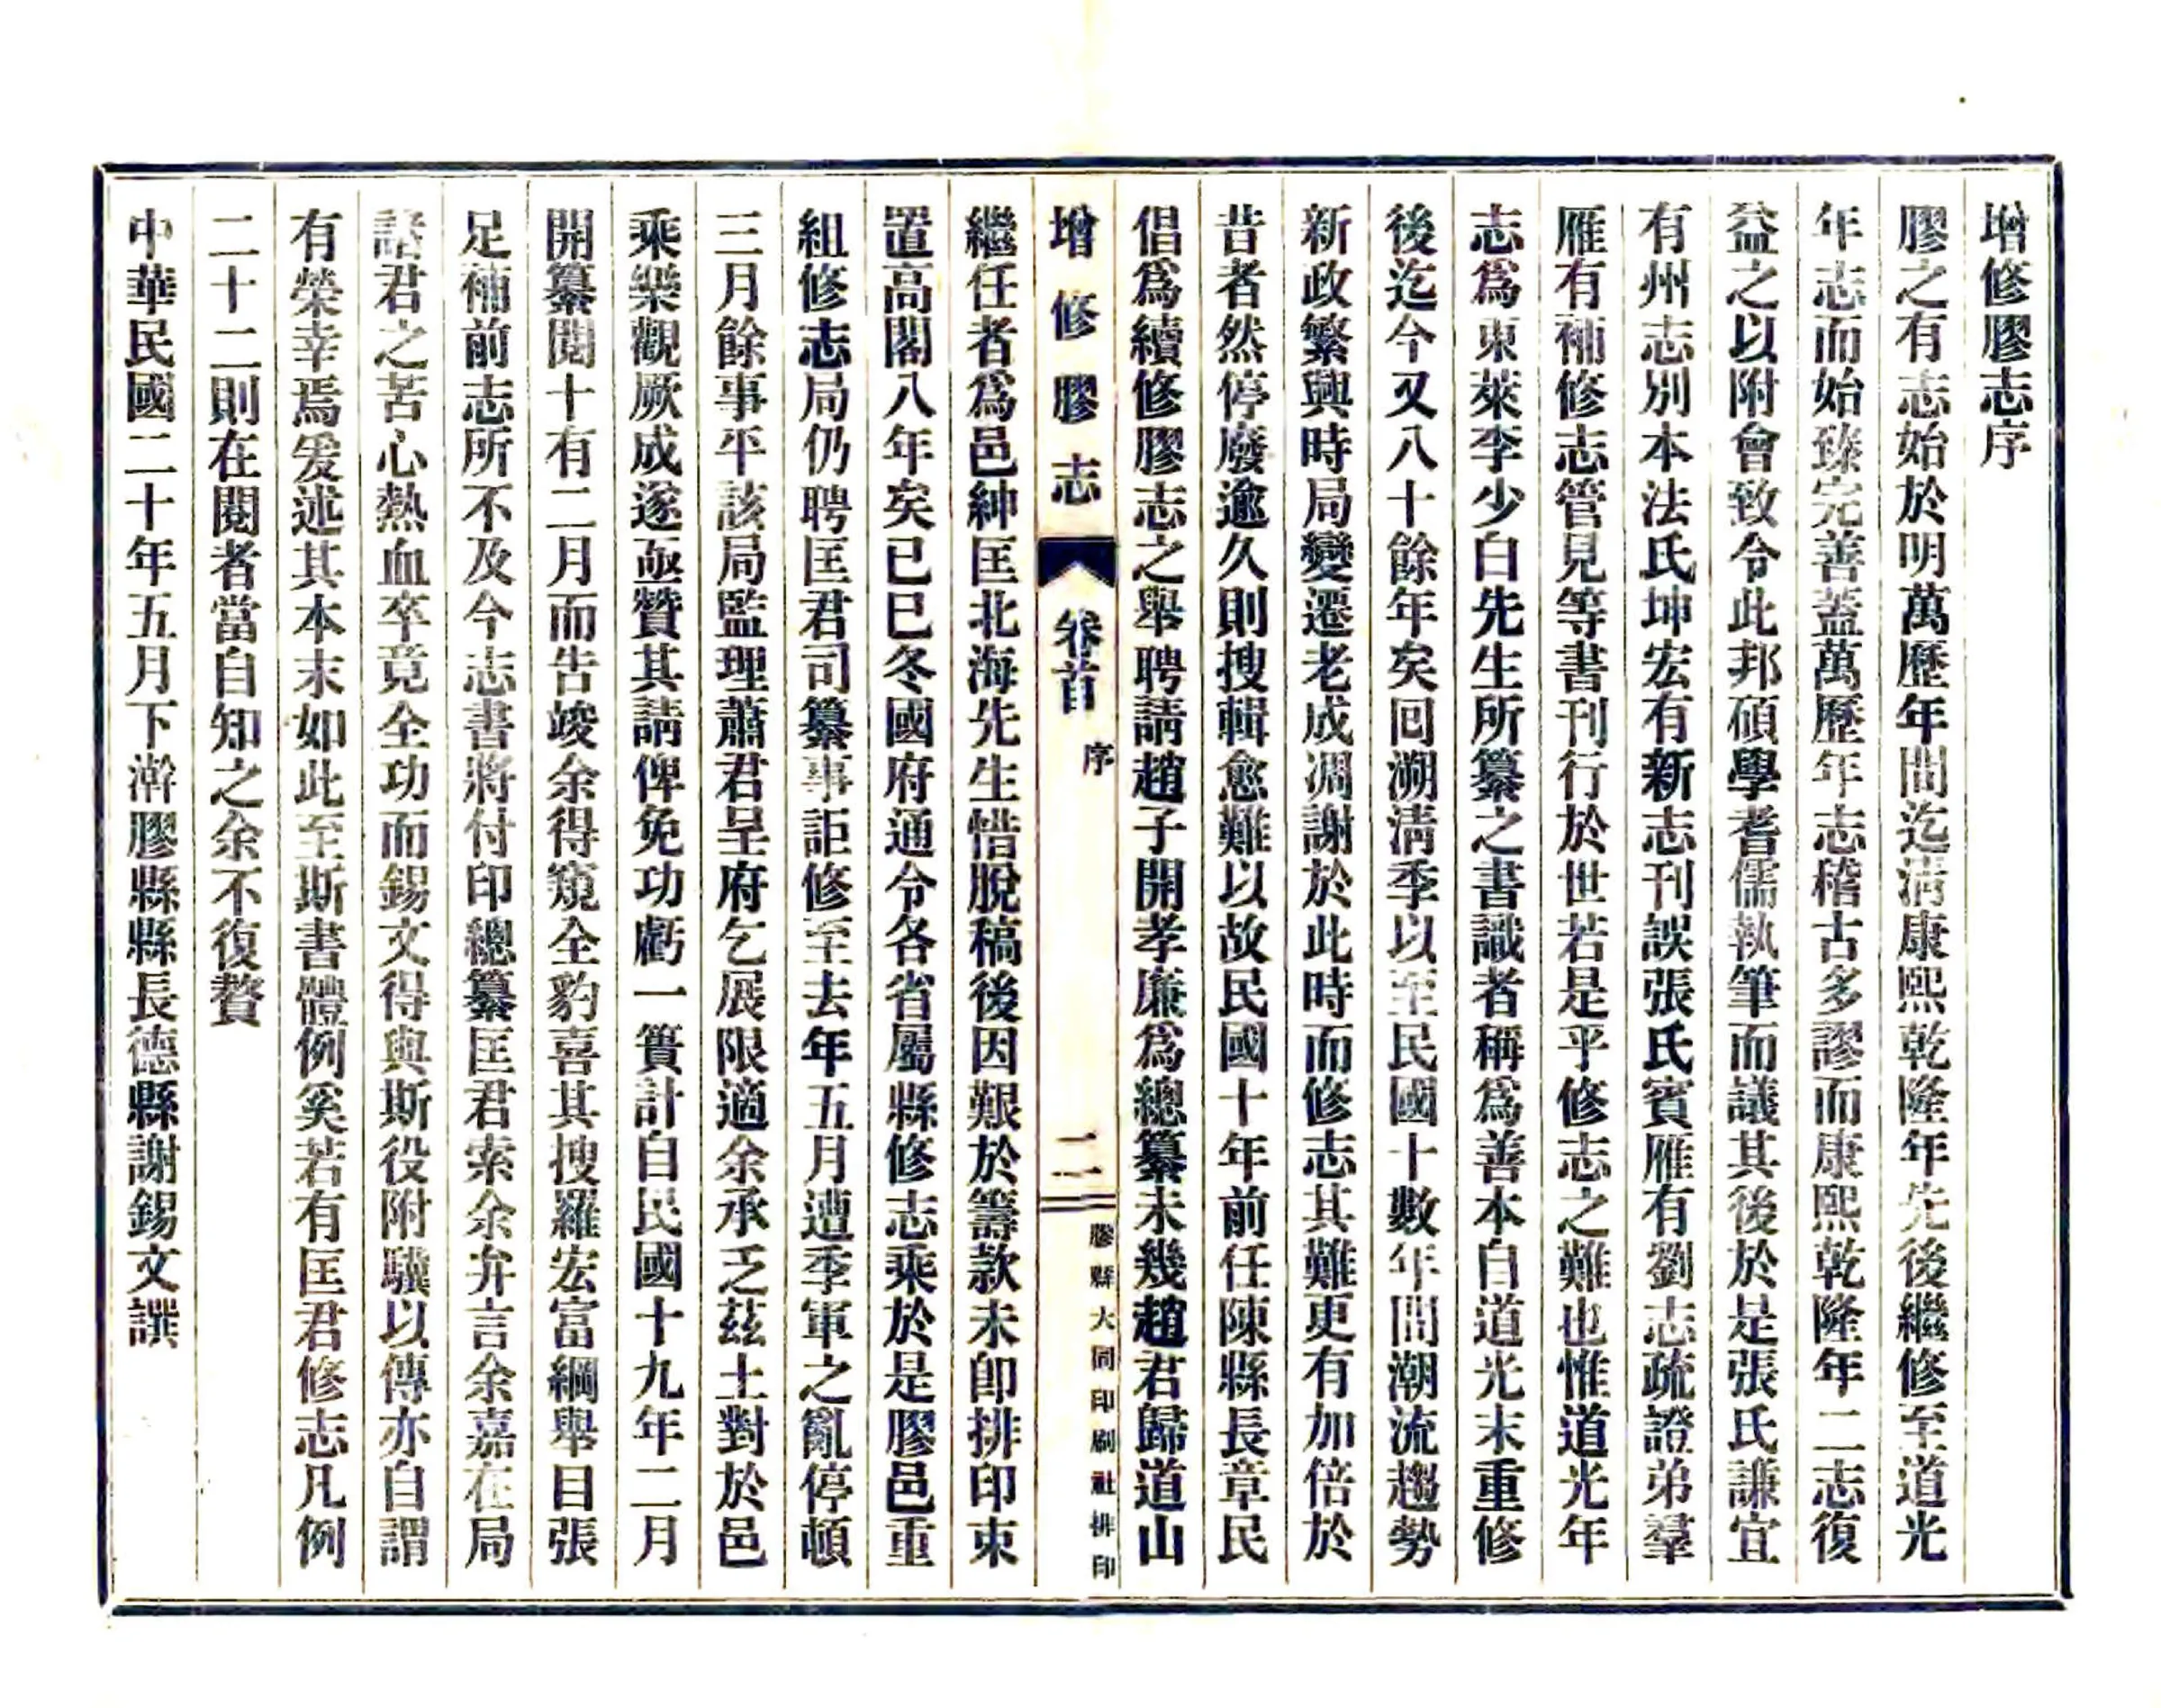 增修膠志序
膠之有志始於明萬歷年間迄淸康熙乾隆年先後繼修至道光
年志而始臻完善蓋萬歷年志稽古多謬而康熙乾隆年二志復
益之以附會致令此邦碩學耆儒執筆而議其後於是張氏謙宜
有州志別本法氏坤宏有新志刊誤張氏賓雁有劉志疏證弟羣
雁有補修志管見等書刊行於世若是乎修志之難也惟道光年
志爲東萊李少白先生所纂之書識者稱爲善本自道光末重修
後迄今又八十餘年矣回溯淸季以至民國十數年間潮流趨勢
新政繁興時局變遷老成凋謝於此時而修志其難更有加倍於
昔者然停廢逾久則搜輯愈難以故民國十年前任陳縣長章民
倡爲續修膠志之舉聘請趙子開孝廉爲總纂未幾趙君歸道山
增修膠志 卷首 序 二 膠縣大同印刷社排印
繼任者爲邑紳匡北海先生惜脫稿後因艱於籌款未卽排印束
置高閣八年矣已巳冬國府通令各省屬縣修志乘於是膠邑重
組修志局仍聘匡君司纂事詎修至去年五月遭季軍之亂停頓
三月餘事平該局監理蕭君呈府乞展限適余承乏茲土對於邑
乘樂觀厥成遂亟贊其請俾免功虧一簣計自民國十九年二月
開纂閱十有二月而告竣余得窺全豹喜其搜羅宏富綱舉目張
足補前志所不及今志書將付印總纂匡君索余弁言余嘉在局
諸君之苦心熱血卒竟全功而錫文得與斯役附驥以傳亦自謂
有榮幸焉爰述其本末如此至斯書體例奚若有匡君修志凡例
二十二則在閱者當自知之余不復贅
中華民國二十年五月下澣膠縣縣長德縣謝錫文譔